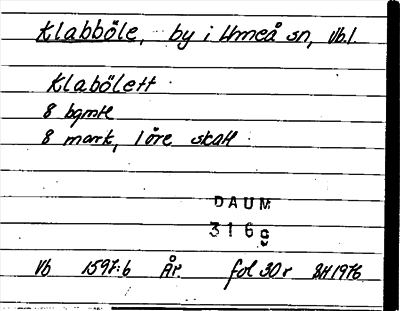 Klabböle, by i Umeå sn, Vb l.
Klabölett
8 bgmtl
8 mark, 1 öre skatt
DAUM
3169
Vb 1597:6 År fol 30 r SH 1976